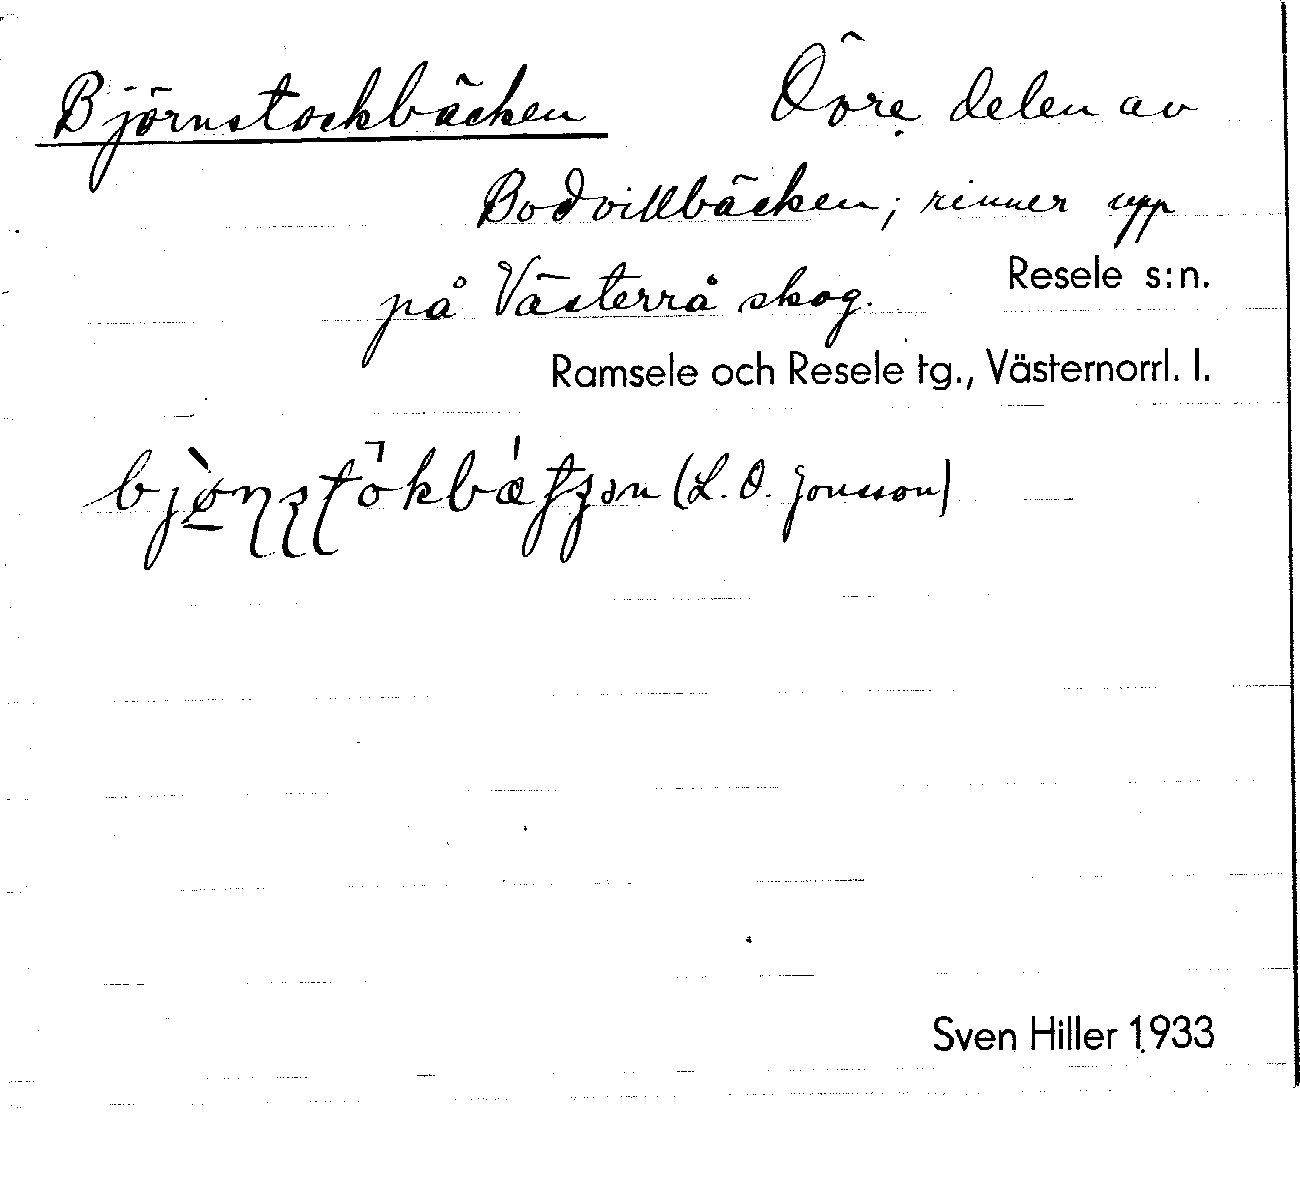 Björnstockbäcken Övre delen av
Bodvillbäcken; rinner upp
Resele s:n.
på Västerrå skog.
Ramsele och Resele tg., Västernorrl. l.
(L. O. Jonsson)
Sven Hiller 1933